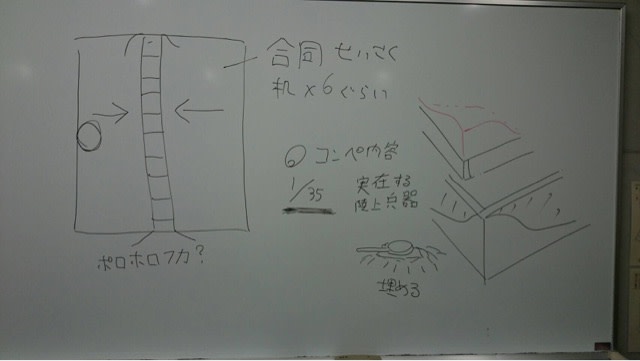 合同せいさく
机×6ぐらい
◎コンペ内容
1/35
実在する
陸上兵器
ボロボロフカ?
埋める